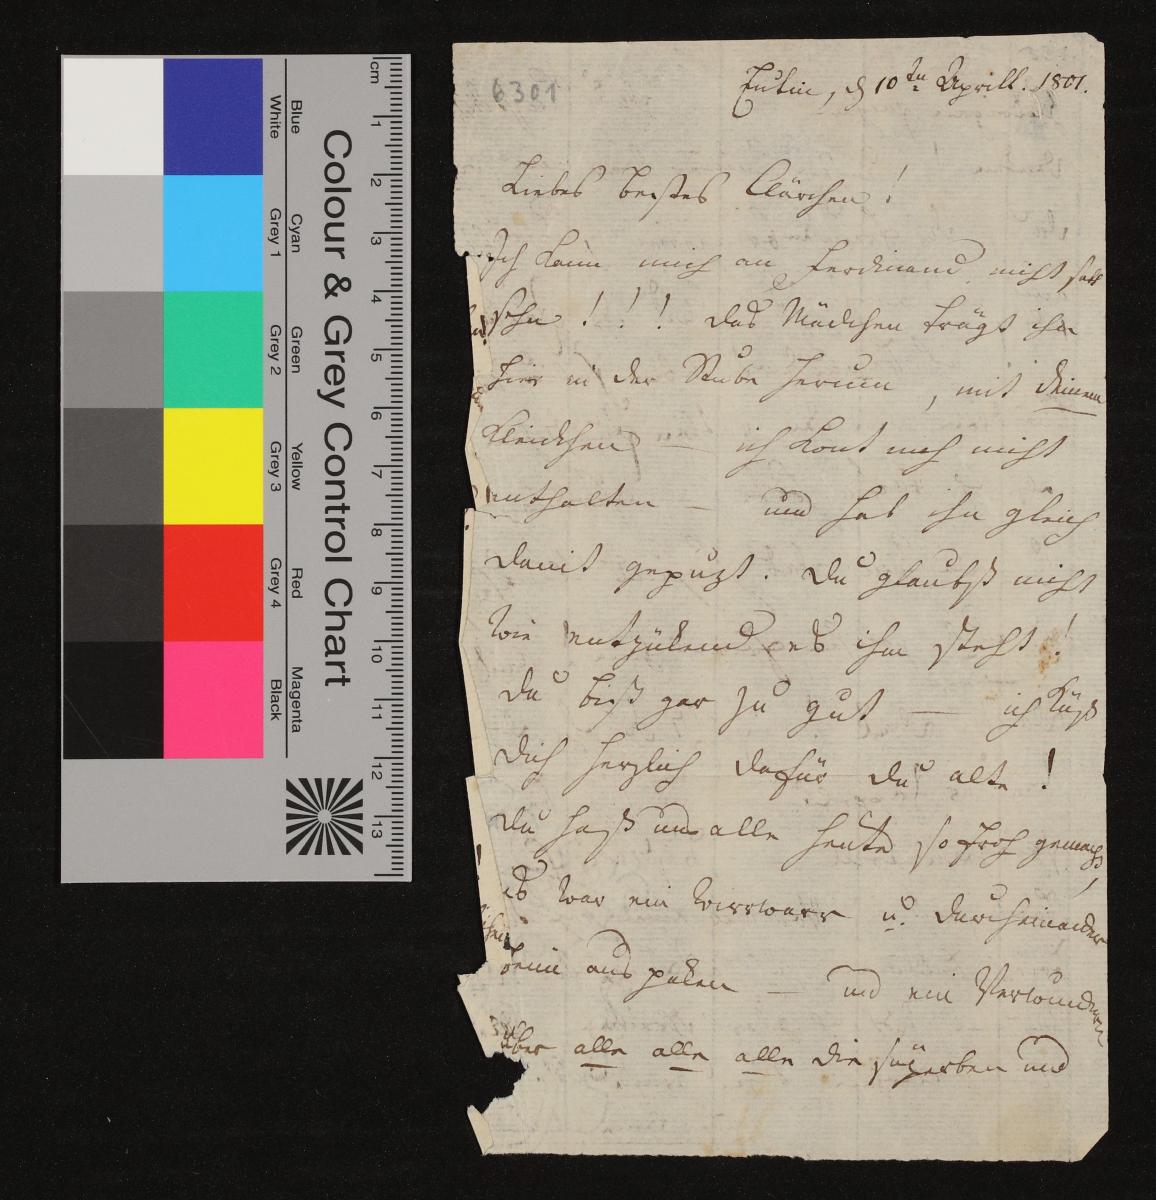 6301
Eutin, d 10ten Aprill. 1801.
Liebes bestes Clärchen!
Ich kann mich an Ferdinand nicht satt
sehn!!! das Mädchen trägt ihn
hier in der Stube herum, mit deinem
Kleidchen — ich kont mich nicht
enthalten — und hab ihn gleich
damit gepuzt. Du glaubst nicht
wie entzükend es ihm steht!
Du bist gar zu gut — ich küße
dich herzlich dafür du alte!
Du hast uns alle heute so froh gemacht,
es war ein wirrwarr u. durcheinander
beim aus paken — und ein Verwundern
über alle alle alle die und
Colour & Grey Control Chart
Blue
Cyan
Green
Yellow
Red
Magenta
White
Grey 1
Grey 2
Grey 3
Grey 4
Black
cm
1
2
3
4
5
6
7
8
9
10
11
12
13